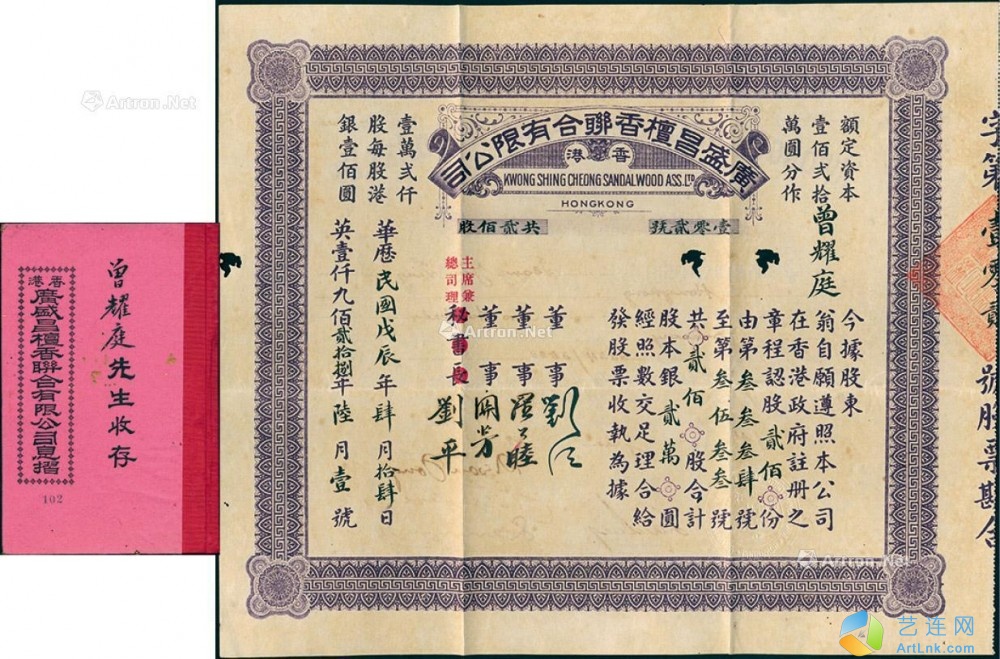 香港
廣盛昌檀香聯合有限公司息摺
曾耀庭先生收存
102
廣盛昌檀香聯合有限公司
香港
KWONG SHING CHEONG SANDALWOOD ASS. LTD.
HONGKONG
壹零貳號
共貳佰股
額定資本
壹佰貳拾
萬圓分作
壹萬貳仟
股每股港
銀壹佰圓
今據股東
曾耀庭
翁自願遵照本公司
在香港政府註册之
章程認股貳佰份
由第叁叁叁肆號
至第叁伍叁叁號
共貳佰股合計
股本銀貳萬圓
經照數交足理合給
發股票收執為據
董事
董事
董事
主席兼
總司理
秘書長
劉平
華歷民國戊辰年肆月拾肆日
英壹仟九佰貳拾捌年陸月壹號
字第壹零貳號股票勘合
Artron.Net
Artron.Net
Artron.Net
艺连网
ArtLnk.com